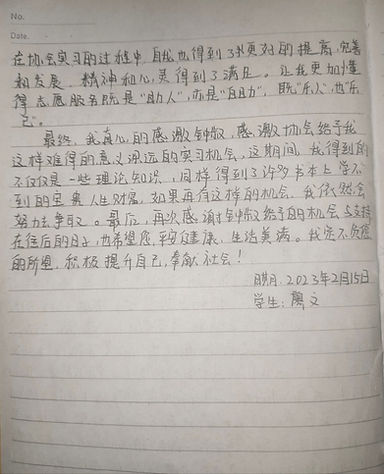 No.
Date.
在协会实习的过程中,自我也得到了更好的提高,完善
和发展,精神和心灵得到了满足。让我更加懂
得志愿服务既是“助人”,亦是“自助”,既“乐人”也“乐
己”。
最终,我真心的感激钟敏,感激协会给予我
这样难得的意义深远的实习机会,这期间,我得到的
不仅仅是一些理论知识,同样得到了许多书本上学不
到的宝贵人生财富,如果再有这样的机会,我依然会
努力去争取。最后,再次感谢钟敏给予的机会与支持
在往后的日子,也希望您平安健康,生活美满。我定不负您
的所望,积极提升自己,奉献社会!
日期:2023年2月15日
学生: 文